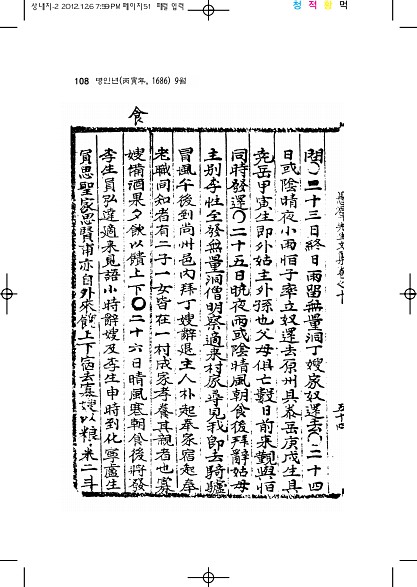 상내지-2 2012.12.6 7:59 PM 페이지51 제럴 입력
청 적 황 먹
108 병인년(丙寅年, 1686) 9월
食
閱○二十三日終日雨留無量洞丁嫂家奴還去○二十四
日或陰晴夜小雨恒子率立奴還去原州具泰岳庚戌生具
尭岳甲寅生即外姑主外孫也父母俱亡數日前來觀與恒
同時發還○二十五日晩夜雨或陰晴風朝食後拜辭姑母
主別李姓全發無量洞僧明察適來村家尋見我即去騎驢
冒風午後到尙州邑內拜丁嫂辭退主人朴起奉家宿起奉
老職同知者有二子一女皆在一村成家孝養其親者也寡
嫂備酒果夕飮以饋上下○二十六日晴風寒朝食後將發
李生員弘達適來見語小時辭嫂及李生申時到化寧盧生
員思聖家思賢甫亦自外來饋上下宿去寡嫂以粮米二斗